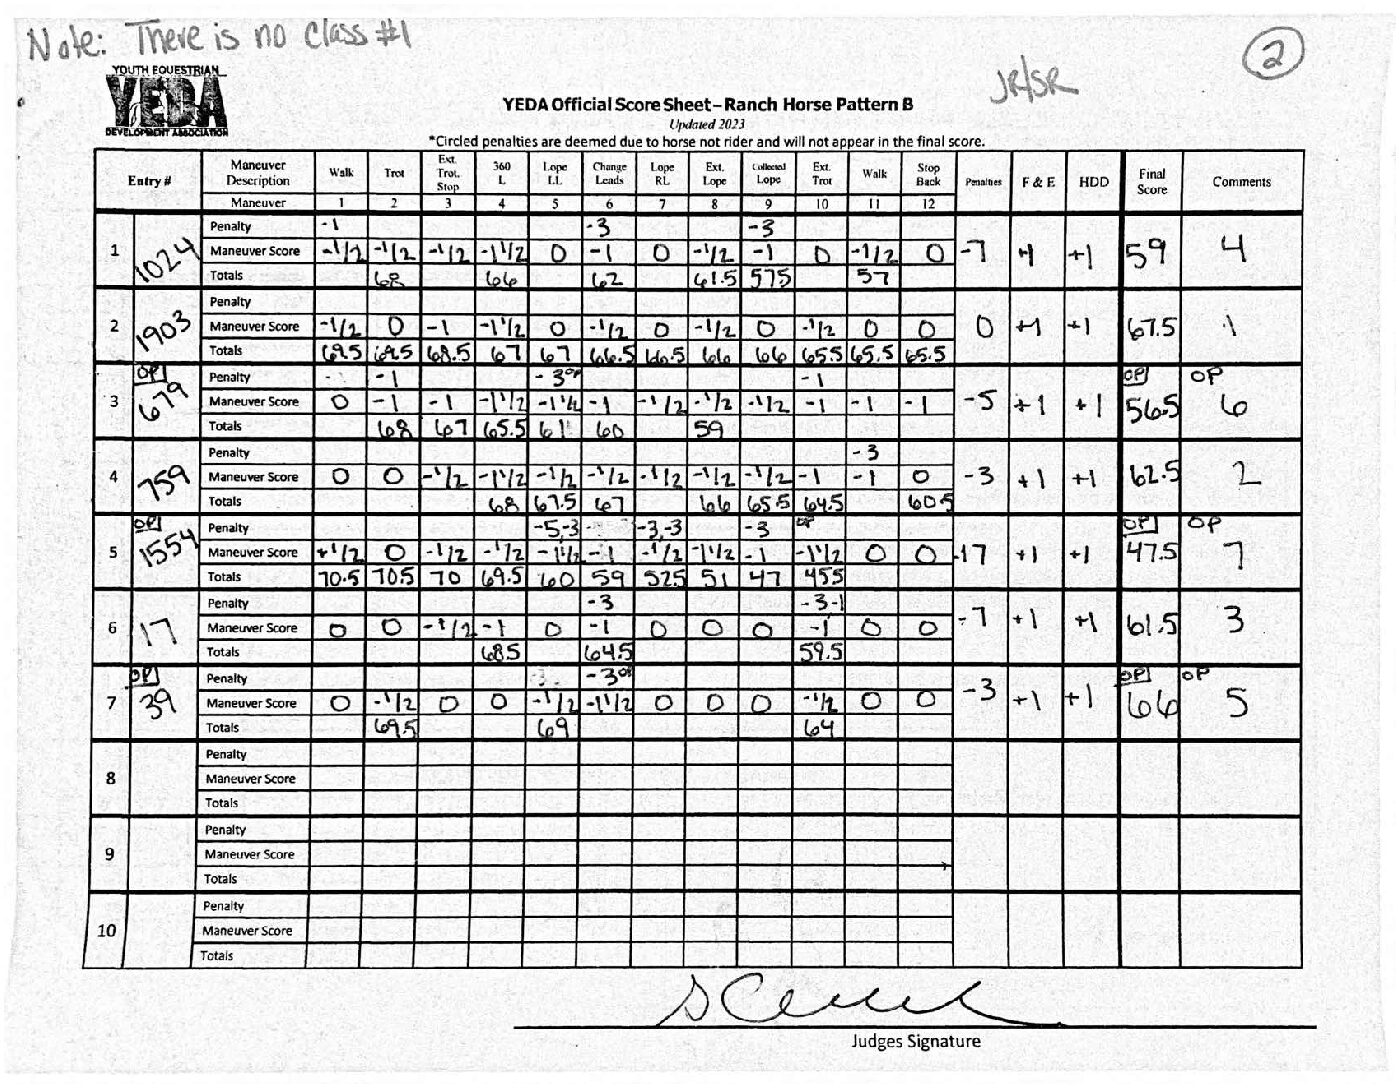 Note: There is no class #1
2
YOUTH EQUESTRIAN
YEDA
DEVELOPMENT ASSOCIATION
JR/SR
YEDA Official Score Sheet – Ranch Horse Pattern B
Updated 2023
*Circled penalties are deemed due to horse not rider and will not appear in the final score.
Entry # Maneuver Description Walk Trot Ext. Trot. Stop 360 L Lope LL Change Leads Lope RL Ext. Lope Collected Lope Ext. Trot Walk Stop Back Penalties F & E HDD Final Score Comments
Maneuver 1 2 3 4 5 6 7 8 9 10 11 12
1 1024 -7 +1 +1 59 4
Penalty -1 -3 -3
Maneuver Score -1/2 -1/2 -1/2 -1 1/2 0 -1 0 -1/2 -1 0 -1/2 0
Totals 68 66 62 61.5 575 57
2 1903 0 +1 +1 67.5 1
Penalty
Maneuver Score -1/2 0 -1 -1 1/2 0 -1/2 0 -1/2 0 -1/2 0 0
Totals 69.5 69.5 68.5 67 67 66.5 66.5 66 66 65.5 65.5 65.5
3 OP 679 -5 +1 +1 OP 56.5 OP 6
Penalty -1 -3 OP -1
Maneuver Score 0 -1 -1 -1 1/2 -1 1/2 -1 -1/2 -1/2 -1/2 -1 -1 -1
Totals 68 67 65.5 61 60 59
4 759 -3 +1 +1 62.5 2
Penalty -3
Maneuver Score 0 0 -1/2 -1 1/2 -1/2 -1/2 -1/2 -1/2 -1/2 -1 -1 0
Totals 68 67.5 67 66 65.5 64.5 60.5
5 OP 1554 -17 +1 +1 OP 47.5 OP 7
Penalty -5,-3 -3,-3 -3 OP
Maneuver Score +1/2 0 -1/2 -1/2 -1 1/2 -1 -1/2 -1 1/2 -1 -1 1/2 0 0
Totals 70.5 70.5 70 69.5 60 59 52.5 51 47 455
6 17 -7 +1 +1 61.5 3
Penalty -3 -3-1
Maneuver Score 0 0 -1/2 -1 0 -1 0 0 0 -1 0 0
Totals 685 64.5 59.5
7 OP 39 -3 +1 +1 OP 66 OP 5
Penalty -3 OP
Maneuver Score 0 -1/2 0 0 -1/2 -1 1/2 0 0 0 -1/2 0 0
Totals 69.5 69 64
8
Penalty
Maneuver Score
Totals
9
Penalty
Maneuver Score
Totals
10
Penalty
Maneuver Score
Totals
Judges Signature